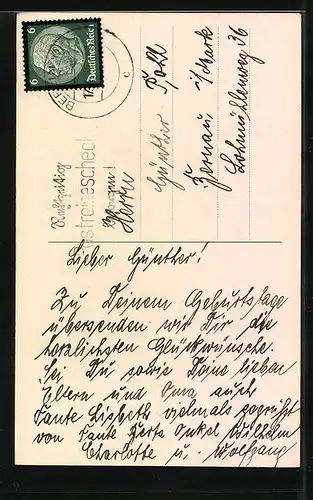 6 Deutsches Reich 6
Rechtzeitig
Postreisescheck
besorgen!
Herrn
Günther Pohl
Bernau i/Mark
Lohmühlenweg 36
Lieber Günther!
Zu Deinem Geburtstage
übersenden wir Dir die
herzlichsten Glückwünsche.
Sei Du sowie Deine lieben
Eltern und Oma auch
Tante Lisbeth vielmals gegrüßt
von Tante Herta Onkel Wilhelm
Charlotte u. Wolfgang